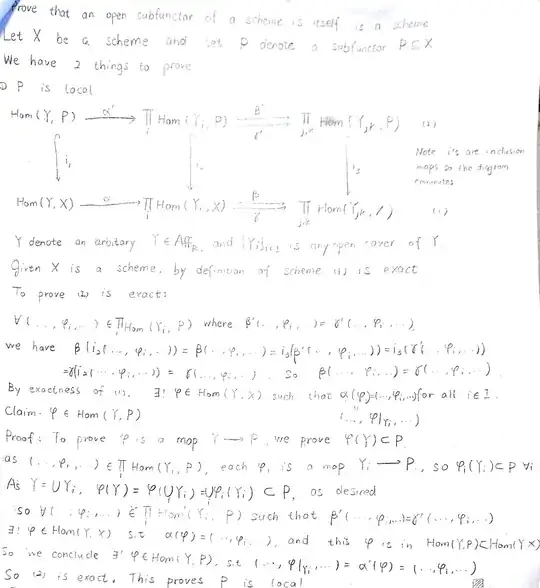 Prove that an open subfunctor of a scheme is itself is a scheme
Let X be a scheme and let P denote a subfunctor P ⊆ X
We have 2 things to prove
① P is local
Hom(Y, P) →α' ∏ Hom(Yi, P) ⇉β' γ' ∏ Hom(Yjk, P) (2)
Note i's are inclusion
maps so the diagram
commutes
Hom(Y, X) →α ∏ Hom(Yi, X) ⇉β γ ∏ Hom(Yjk, X) (1)
Y denote an arbitary Y ∈ Aff, and {Yi}i∈I is any open cover of Y
Given X is a scheme, by definition of scheme (1) is exact
To prove (2) is exact:
∀(..., φi, ...) ∈ ∏ Hom(Yi, P) where β'(.., φi, ..) = γ'(.., φi, ...)
we have β(i2(..., φi, ..)) = β(.., φi, ...) = i3(β'(.., φi, ...)) = i3(γ'(.., φi, ..))
= γ(i2(.. φi, ...)) = γ(.., φi, ...). So β(.., φi, ...) = γ(.., φi, ...)
By exactness of (1), ∃! φ ∈ Hom(Y, X) such that α(φ) = (.., φi, ...) for all i ∈ I.
(..., φ|Yi, ...)
Claim. φ ∈ Hom(Y, P)
Proof: To prove φ is a map Y → P, we prove φ(Y) ⊂ P,
as (.., φi, ..) ∈ ∏ Hom(Yi, P), each φi is a map Yi → P, so φi(Yi) ⊂ P ∀i
As Y = ∪Yi, φ(Y) = φ(∪Yi) = ∪φi(Yi) ⊂ P, as desired
so ∀(.., φi, ..) ∈ ∏ Hom(Yi, P) such that β'(.., φi, ...) = γ'(.., φi, ..)
∃! φ ∈ Hom(Y, X) s.t α(φ) = (.., φi, ...), and this φ is in Hom(Y, P) ⊂ Hom(Y, X)
So we conclude ∃! φ ∈ Hom(Y, P), s.t (..., φ|Yi, ...) = α'(φ) = (.., φi, ..)
So (2) is exact. This proves P is local